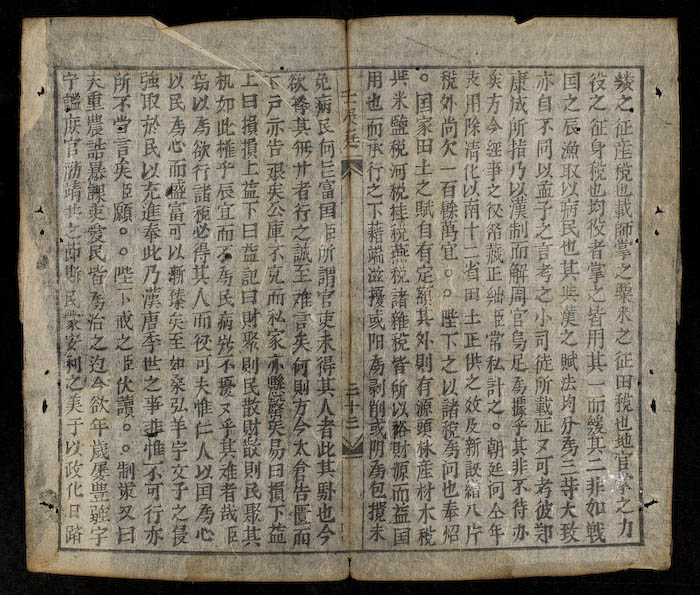 縷之征産稅也載師掌之粟米之征田稅也地官掌之力
役之征身稅也均役者掌之皆用其一而緩其二非如戰
囯之辰漁取以病民也其與漢之賦法均分爲三等大致
亦自不同以孟子之言考之小司徒所載証又可考彼鄭
康成所指乃以漢制而解周官烏足爲據乎其非不待亦
矣方今經事之役帑藏正絀臣常私計之朝廷向全年
支用除清化以南十二省田土正供之效及新設緡八片
稅外尚欠一百餘萬宜。。陛下之以諸稅爲問也奉炤
。囯家田土之賦自有定額其外則有源頭林産材木稅
與米鹽稅河稅桂稅燕稅諸雜稅皆所以裕財源而益国
用也而承行之下藉端滋擾或阳爲剥削或阴爲包攬未
壬辰廷
三十三
免病民何言富国臣所謂官吏未得其人者此其獘也今
欲
其
者行之誠至难言矣何則方今太倉告匱而
下戸亦告艰矣公庫不克而私家亦懸罄矣易曰損下益
上曰損損上益下曰益記曰財聚則民散財散則民聚其
机如此榷乎辰宜而不爲民病
不擾又乎其難者哉臣
窃以爲欲行諸稅必得其人而後可夫惟仁人以国爲心
以民爲心而盛富可以漸臻矣至如桑弘羊宇文子之侵
強取於民以充進奉此乃漢唐季世之事非惟不可行亦
所不當言矣臣願。。陛下戒之臣伏讀。。制策又曰
夫重農誥暴課吏爱民皆爲治之迄今欲年歲屡豊
字
宁謐庶官勵靖共之節斯民蒙安利之美于以政化日躋